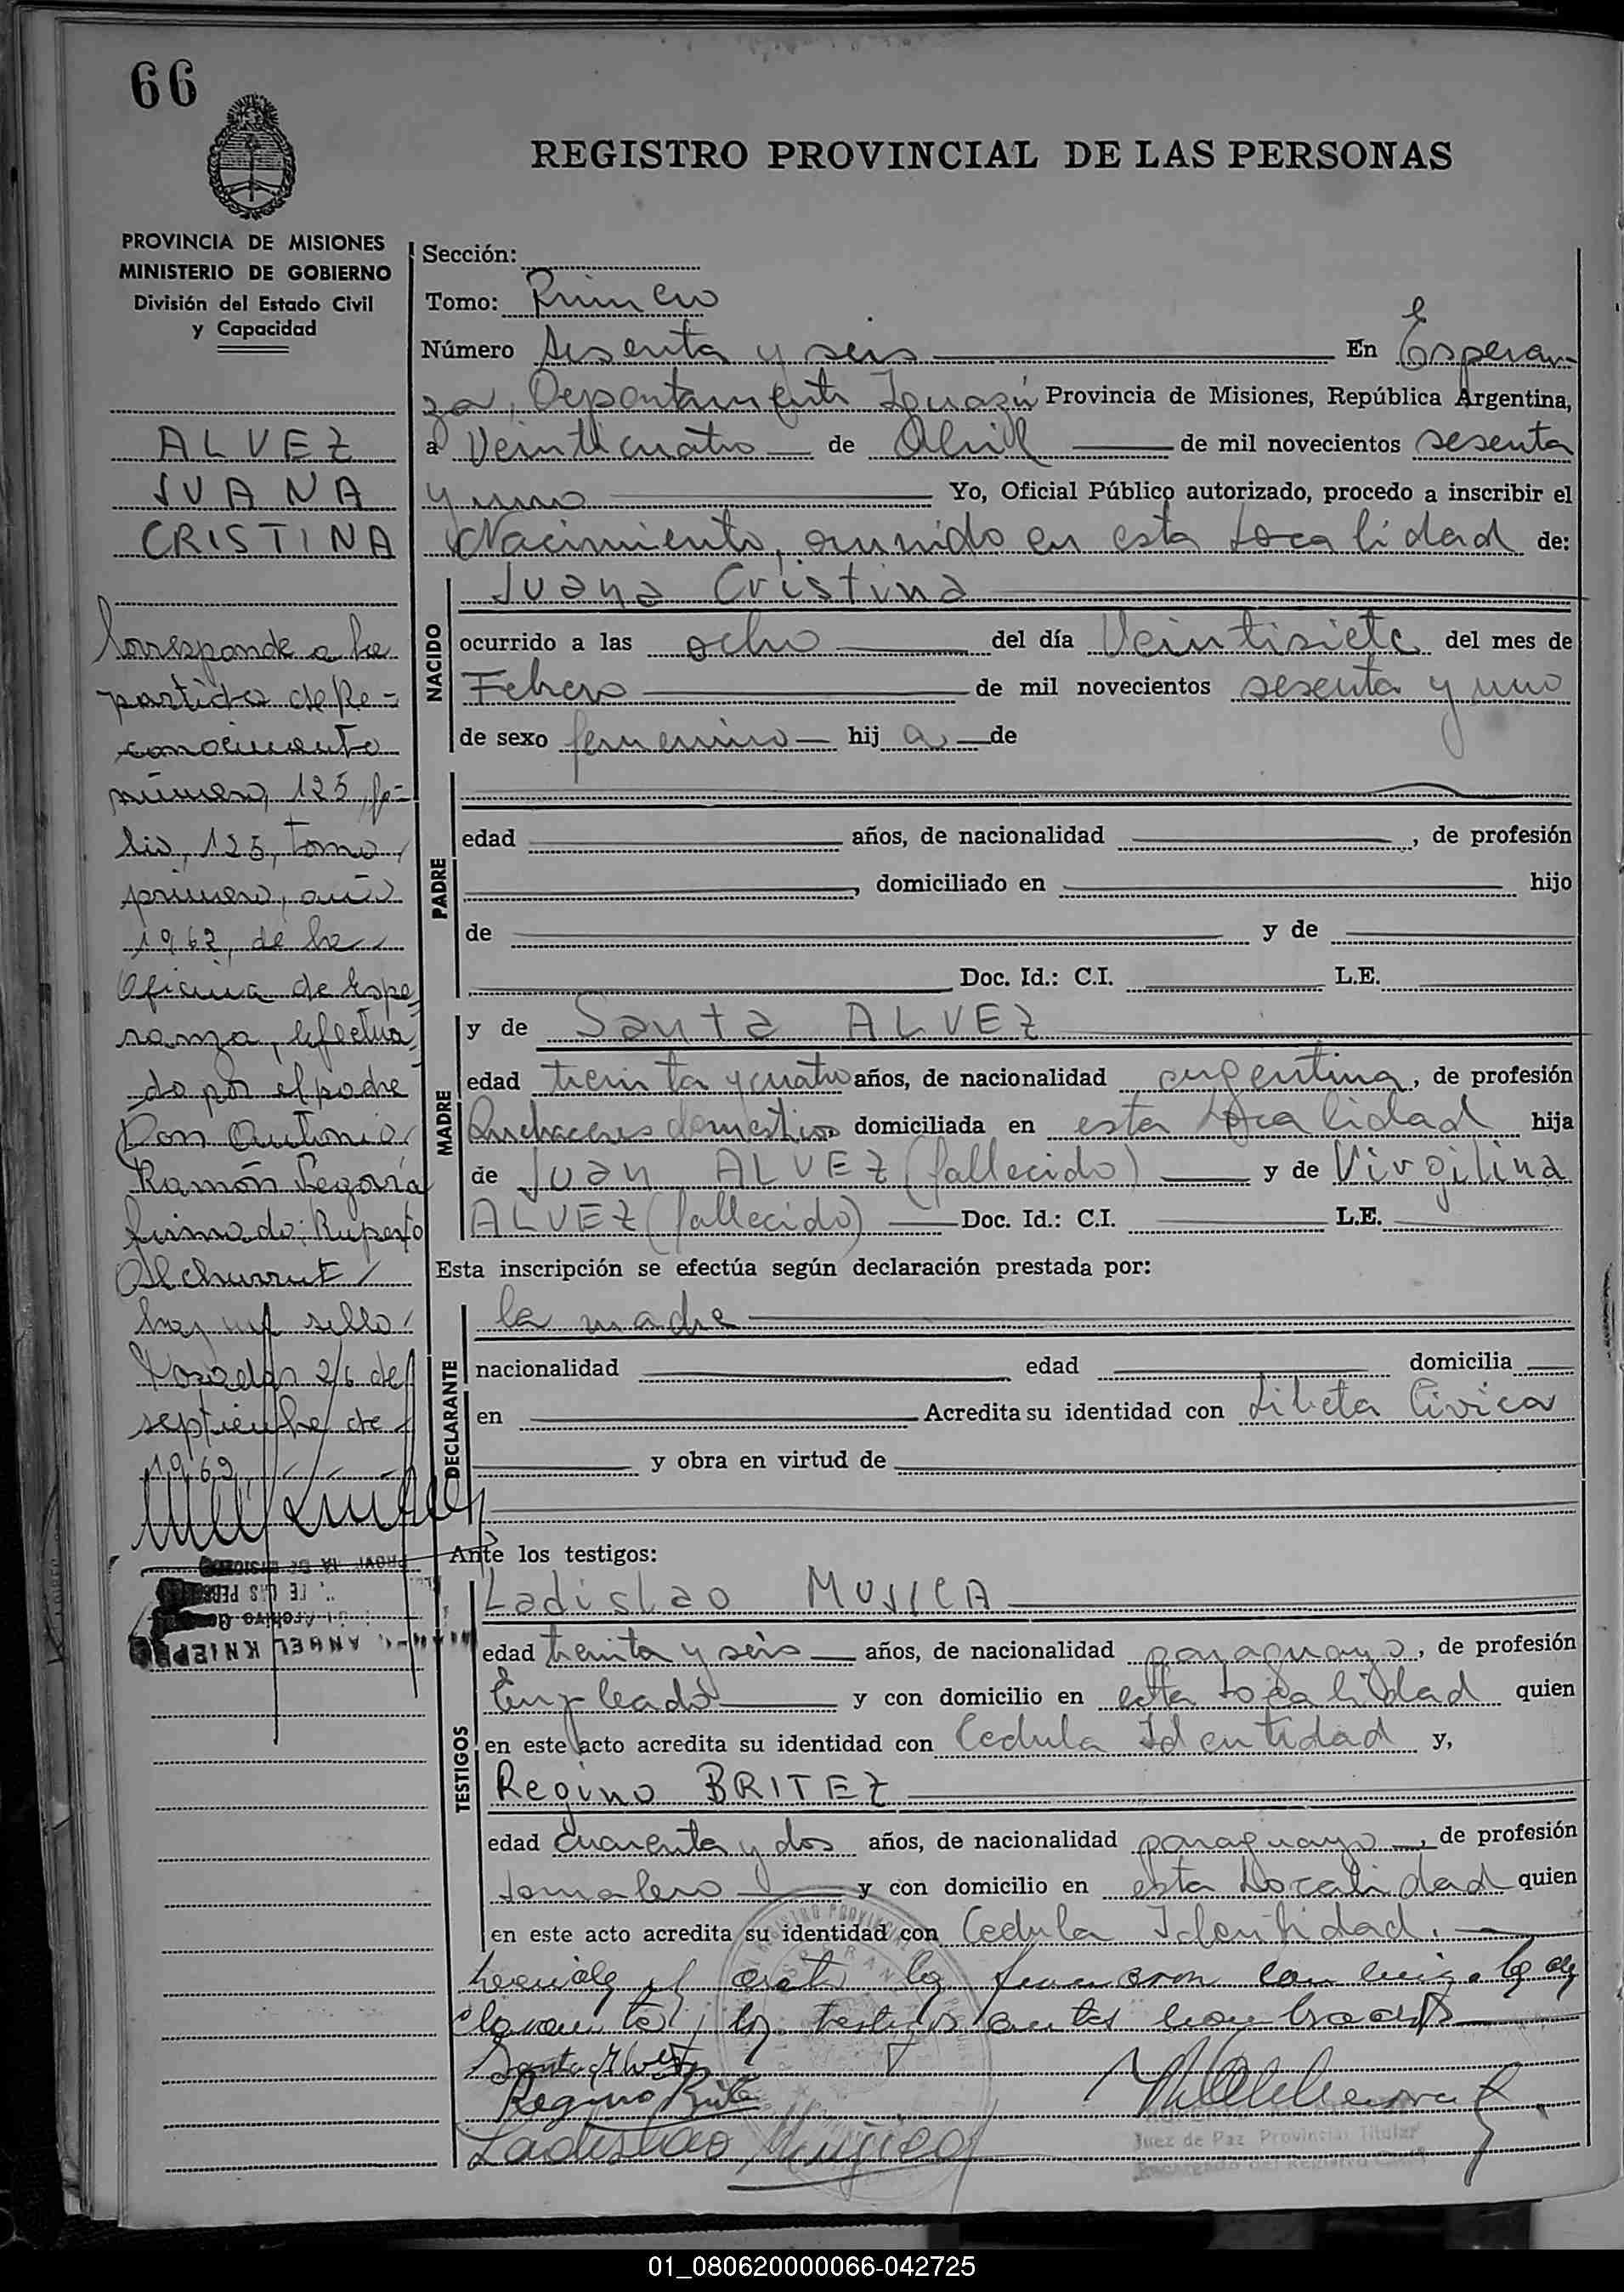 66
REGISTRO PROVINCIAL DE LAS PERSONAS
PROVINCIA DE MISIONES
MINISTERIO DE GOBIERNO
División del Estado Civil
y Capacidad
ALVEZ
JUANA
CRISTINA
Corresponde a la
partida de Re-
conocimiento
número, 125, fo-
lio, 125, tomo,
primero, año
1962, de la
Oficina de Espe
ranza, efectua
do por el padre
Don Antonio
Ramón Segovia
firmado: Ruperto
Alchurrut/
hay un sello/
Posadas 2/6 de
septiembre de
1969
ANGEL KNIEPE
Sección:
Tomo: Primero
Número Sesenta y seis En Esperan-
za, Departamento Iguazú Provincia de Misiones, República Argentina,
a Veinticuatro de Abril de mil novecientos sesenta
y uno Yo, Oficial Público autorizado, procedo a inscribir el
Nacimiento, ocurrido en esta Localidad de:
NACIDO
Juana Cristina
ocurrido a las ocho del día Veintisiete del mes de
Febrero de mil novecientos sesenta y uno
de sexo femenino hij a de
PADRE
edad años, de nacionalidad , de profesión
, domiciliado en hijo
de y de
Doc. Id.: C.I. L.E.
MADRE
y de Santa ALVEZ
edad treinta y cuatro años, de nacionalidad argentina, de profesión
Quehaceres domesticos domiciliada en esta Localidad hija
de Juan ALVEZ (fallecido) y de Virgilina
ALVEZ (fallecido) Doc. Id.: C.I. L.E.
Esta inscripción se efectúa según declaración prestada por:
DECLARANTE
la madre
nacionalidad edad domicilia
en Acredita su identidad con Libreta Civica
y obra en virtud de
Ante los testigos:
TESTIGOS
Ladislao MUJICA
edad treinta y seis años, de nacionalidad paraguayo, de profesión
Empleado y con domicilio en esta Localidad quien
en este acto acredita su identidad con Cedula Identidad y,
Regino BRITEZ
edad cuarenta y dos años, de nacionalidad paraguayo, de profesión
Jornalero y con domicilio en esta Localidad quien
en este acto acredita su identidad con Cedula Identidad.
acta la firmaron conmigo la de
clarante y los testigos antes nombrados
Santa Alvez
Regino Brite
Ladislao Mujica
Juez de Paz Provincial Titular
Encargado del Registro Civil
01_080620000066-042725